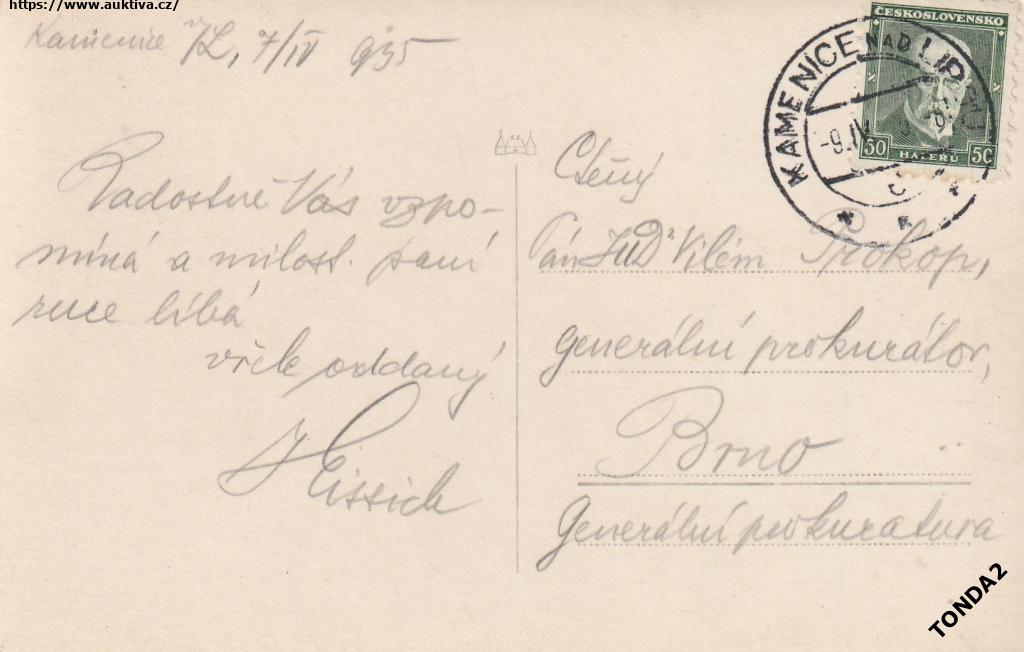 https://www.auktiva.cz/
Kamenice n/L, 7/IV 935
Radostně Vás vzpo-
míná a milost. paní
ruce líbá
vřele oddaný
Ctěný
Pán JUDr Vilém Prokop,
generální prokurátor,
Brno
Generální prokuratura
KAMENICE NAD LIPOU
-9.IV
ČESKOSLOVENSKO
50 HALÉŘŮ 50
TONDA2